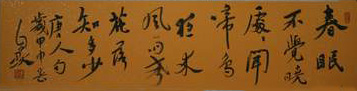 春眠
不覺曉
處々聞
啼鳥
夜来
風雨聲
花落
知多少
唐人句
歲甲午